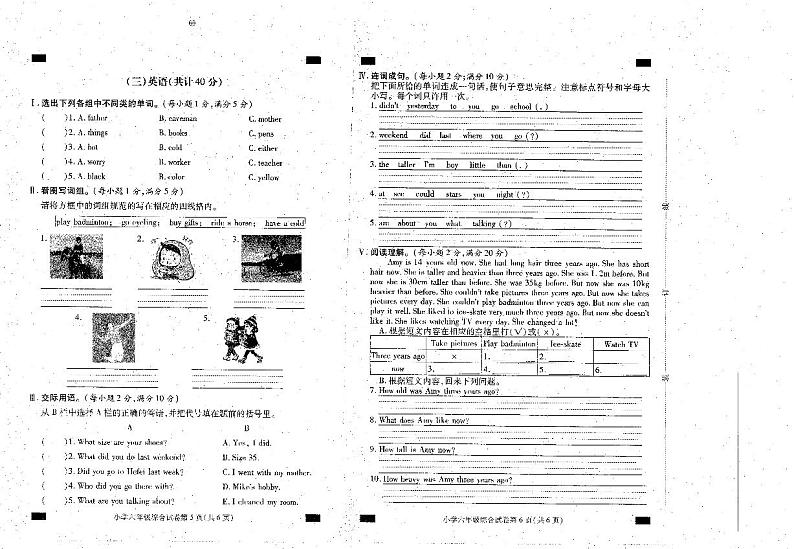 (三)英语(共计40分)
Ⅰ.选出下列各组中不同类的单词。(每小题1分,满分5分)
( )1. A. father B. caveman C. mother
( )2. A. things B. books C. pens
( )3. A. hot B. cold C. either
( )4. A. worry B. worker C. teacher
( )5. A. black B. color C. yellow
Ⅱ.看图写词组。(每小题1分,满分5分)
请将方框中的词组规范的写在相应的四线格内。
play badminton; go cycling; buy gifts; ride a horse; have a cold
1. 2. 3.
4. 5.
Ⅲ.交际用语。(每小题2分,满分10分)
从B栏中选择A栏的正确的答语,并把代号填在题前的括号里。
A B
( )1. What size are your shoes? A. Yes, I did.
( )2. What did you do last weekend? B. Size 35.
( )3. Did you go to Hefei last week? C. I went with my mother.
( )4. Who did you go there with? D. Mike's hobby.
( )5. What are you talking about? E. I cleaned my room.
小学六年级综合试卷第5页(共6页)
Ⅳ.连词成句。(每小题2分;满分10分)
把下面所给的单词连成一句话,使句子意思完整。注意标点符号和字母大
小写。每个词只许用一次。
1. didn't yesterday to you go school (.)
2. weekend did last where you go (?)
3. the taller I'm boy little than (.)
4. at see could stars you night (?)
5. am about you what talking (?)
Ⅴ.阅读理解。(每小题2分,满分20分)
Amy is 14 years old now. She had long hair three years ago. She has short
hair now. She is taller and heavier than three years ago. She was 1.2m before. But
now she is 30cm taller than before. She was 35kg before. But now she was 10kg
heavier than before. She couldn't take pictures three years ago. But now she takes
pictures every day. She couldn't play badminton three years ago. But now she can
play it well. She liked to ice-skate very much three years ago. But now she doesn't
like it. She likes watching TV every day. She changed a lot!
A. 根据短文内容在相应的空格里打(√)或(×)。
Take pictures Play badminton Ice-skate Watch TV
Three years ago × 1. 2.
now 3. 4. 5. 6.
B. 根据短文内容,回来下列问题。
7. How old was Amy three years ago?
8. What does Amy like now?
9. How tall is Amy now?
10. How heavy was Amy three years ago?
小学六年级综合试卷第6页(共6页)